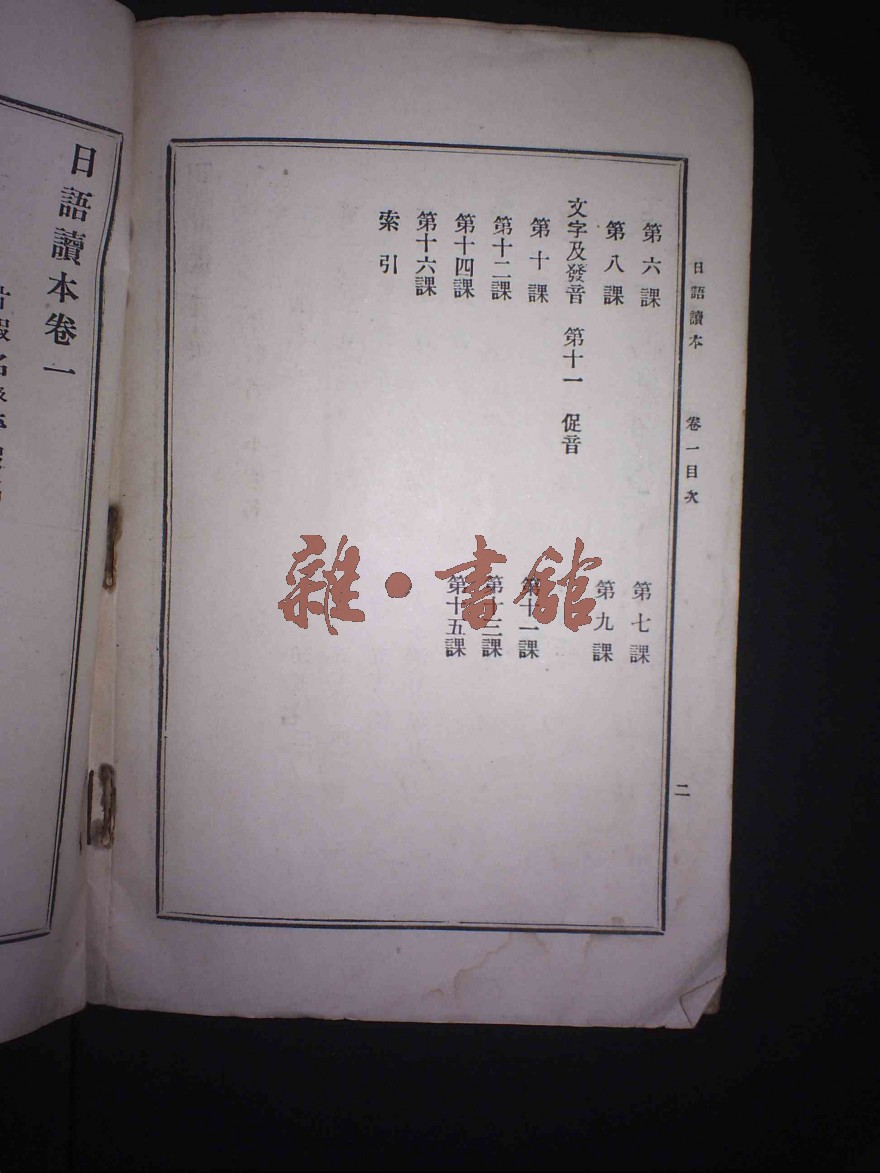 日語讀本　卷一目次　二
第六課　第七課
第八課　第九課
文字及發音　第十一　促音
第十課　第十一課
第十二課　第十三課
第十四課　第十五課
第十六課
索引
日語讀本卷一
雜·書館